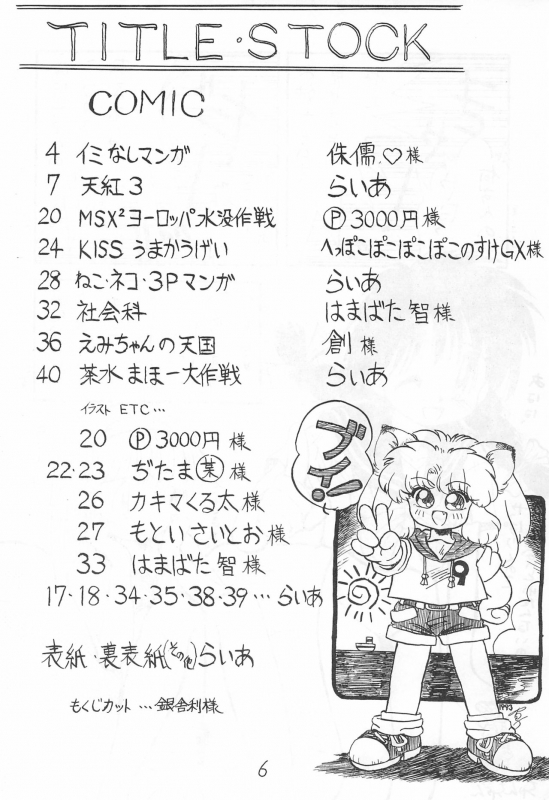 TITLE・STOCK
COMIC
4 イミなしマンガ 侏儒.♡様
7 天紅3 らいあ
20 MSX²ヨーロッパ水没作戦 Ⓟ3000円様
24 KISS うまかうげい へっぽこぽこぽこぽこのすけGX様
28 ねこ・ネコ・3Pマンガ らいあ
32 社会科 はまばた智様
36 えみちゃんの天国 創様
40 茶水まほー大作戦 らいあ
イラスト ETC…
20 Ⓟ3000円様
22・23 ぢたま(葉)様
26 カキマくる太様
27 もといさいとお様
33 はまばた智様
17・18・34・35・38・39… らいあ
表紙・裏表紙(その他)らいあ
もくじカット…銀舎利様
ブイ!
6